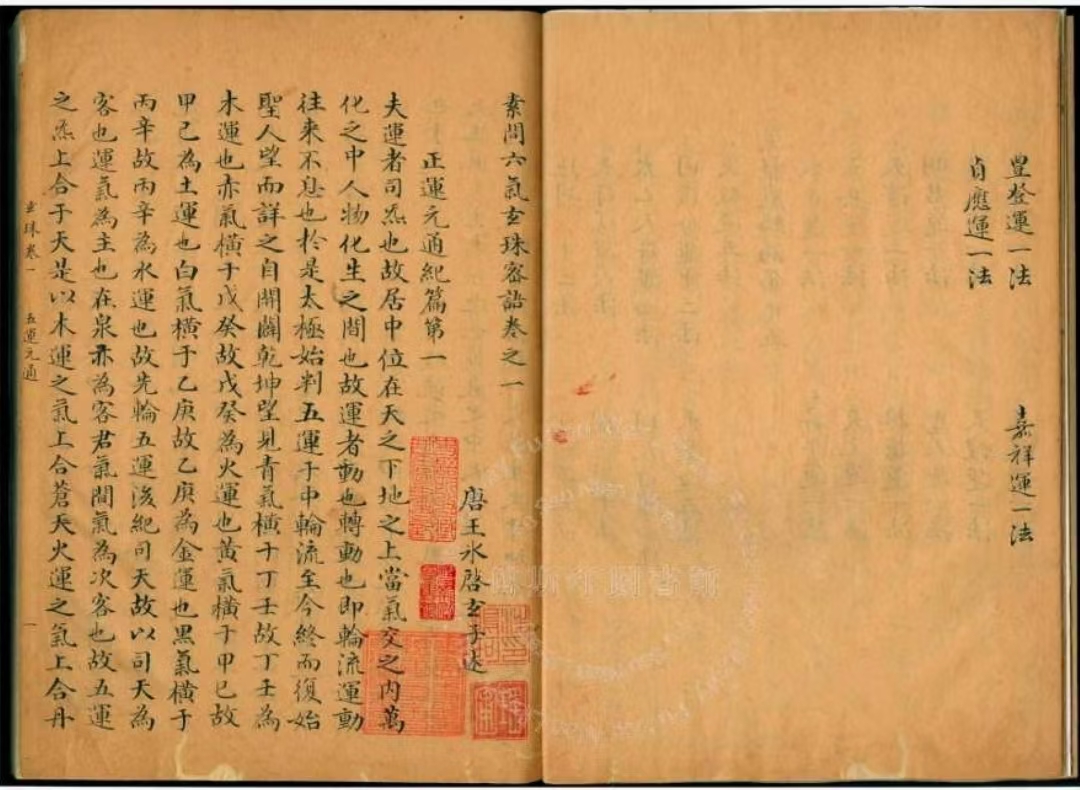 豊登運一法　嘉祥運一法
肯應運一法
素問六氣玄珠密語卷之一
唐王氷啓玄子述
正運元通紀篇第一
夫運者司炁也故居中位在天之下地之上當氣交之內萬
化之中人物化生之間也故運者動也轉動也即輪流運動
往来不息也於是太極始判五運于中輪流至今終而復始
聖人望而詳之自開闢乾坤望見青氣橫于丁壬故丁壬為
木運也赤氣橫于戊癸故戊癸為火運也黃氣橫于甲己故
甲己為土運也白氣橫于乙庚故乙庚為金運也黑氣橫于
丙辛故丙辛為水運也故先輪五運後紀司天故以司天為
客也運氣為主也在泉亦為客君氣間氣為次客也故五運
之炁上合于天是以木運之氣上合蒼天火運之氣上合丹
玄珠卷一　五運元通　一